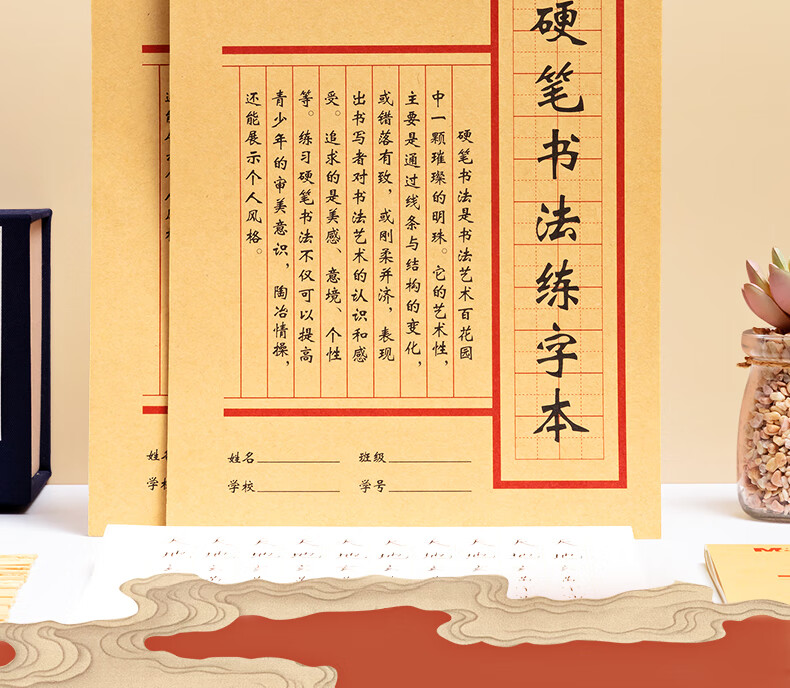 硬笔书法练字本
硬笔书法是书法艺术百花园
中一颗璀璨的明珠。它的艺术性,
主要是通过线条与结构的变化,
或错落有致,或刚柔并济,表现
出书写者对书法艺术的认识和感
受。追求的是美感、意境、个性
等。练习硬笔书法不仅可以提高
青少年的审美意识,陶冶情操,
还能展示个人风格。
姓名 班级
学校 学号
姓名
学校